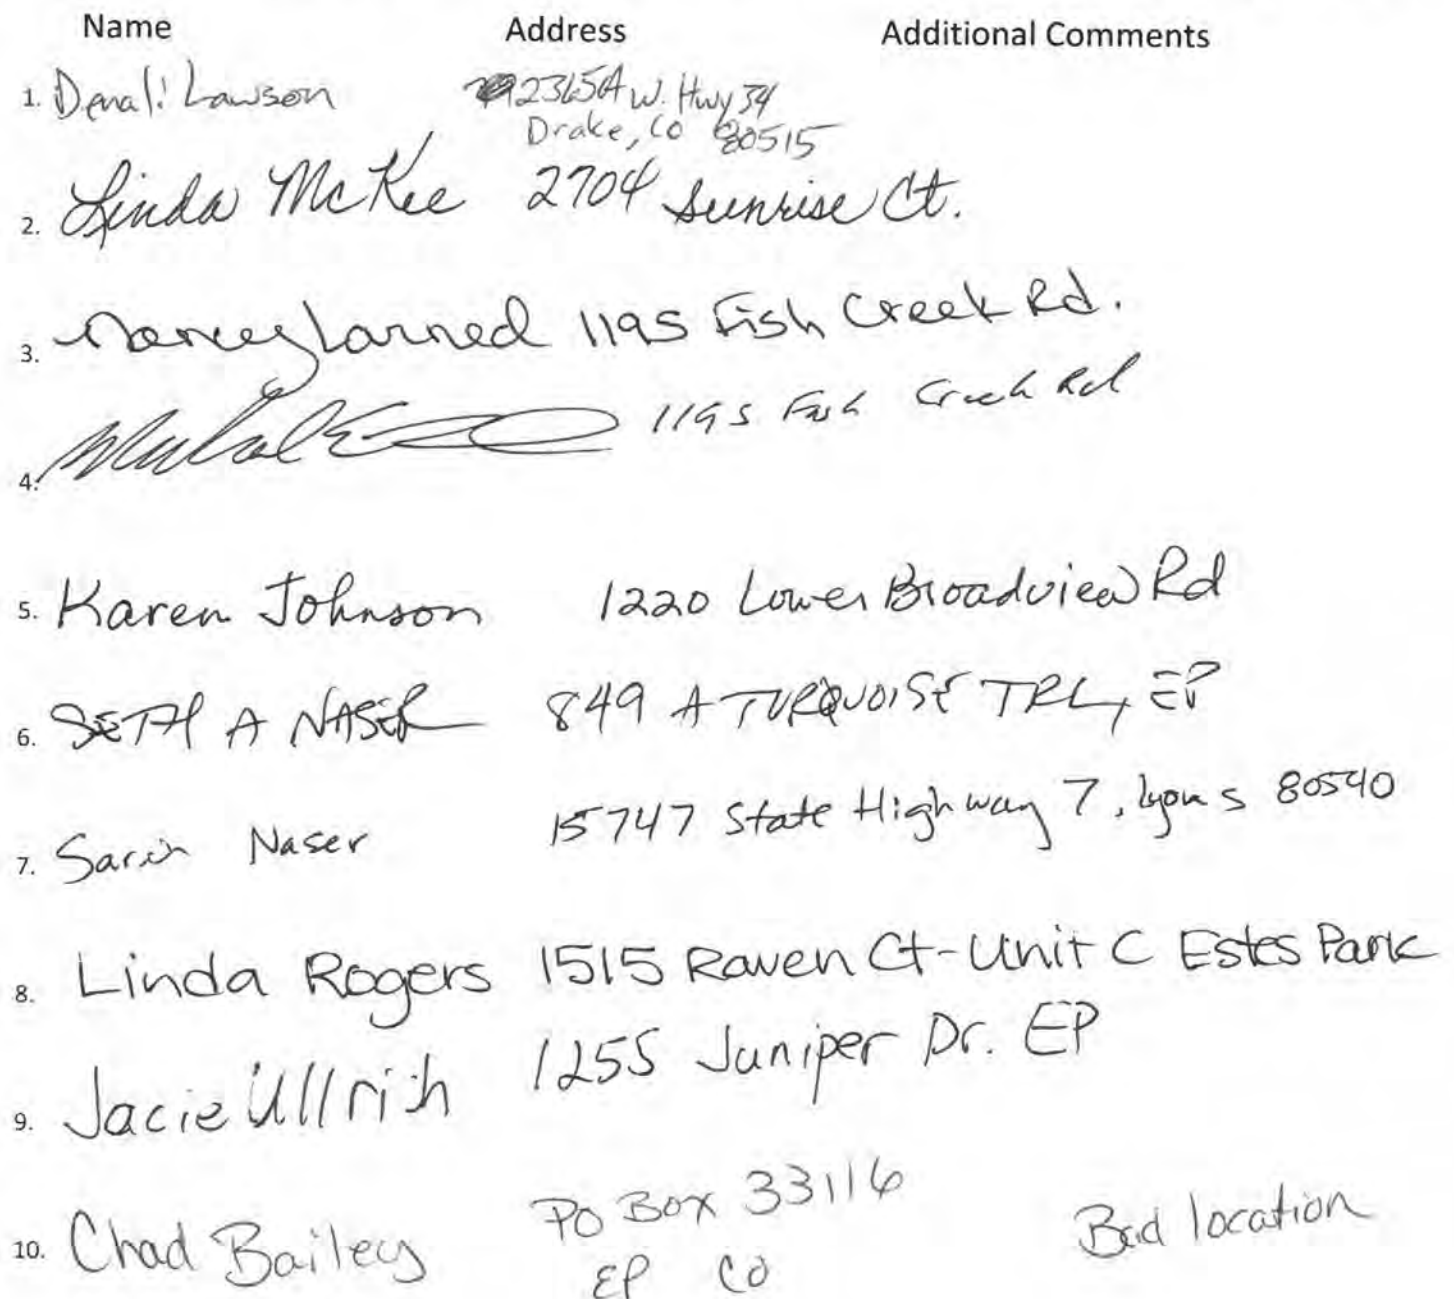 Name Address Additional Comments
1. Denali Lawson 2365A W. Hwy 34
Drake, CO 80515
2. Linda McKee 2704 Sunrise Ct.
3. Nancy Larned 1195 Fish Creek Rd.
4. 1195 Fish Creek Rd
5. Karen Johnson 1220 Lower Broadview Rd
6. SETH A NASER 849 A TURQUOISE TRL, EP
7. Naser 15747 State Highway 7, Lyons 80540
8. Linda Rogers 1515 Raven Ct-Unit C Estes Park
9. Jacie Ullrich 1255 Juniper Dr. EP
10. Chad Bailey PO Box 33116 Bad location
EP CO